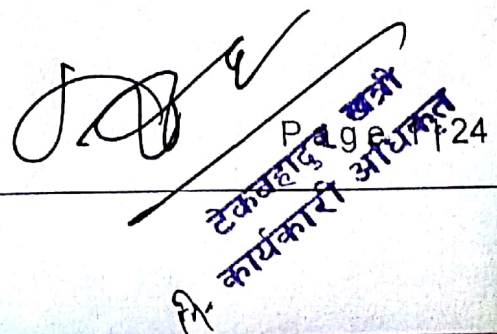 Page 1|24
टेकबहादुर खत्री
नि. कार्यकारी अधिकृत